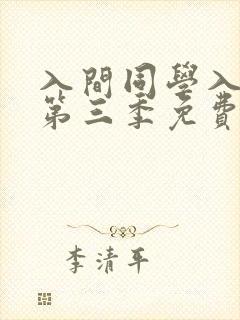 入間同學入
第三季免費
李清平